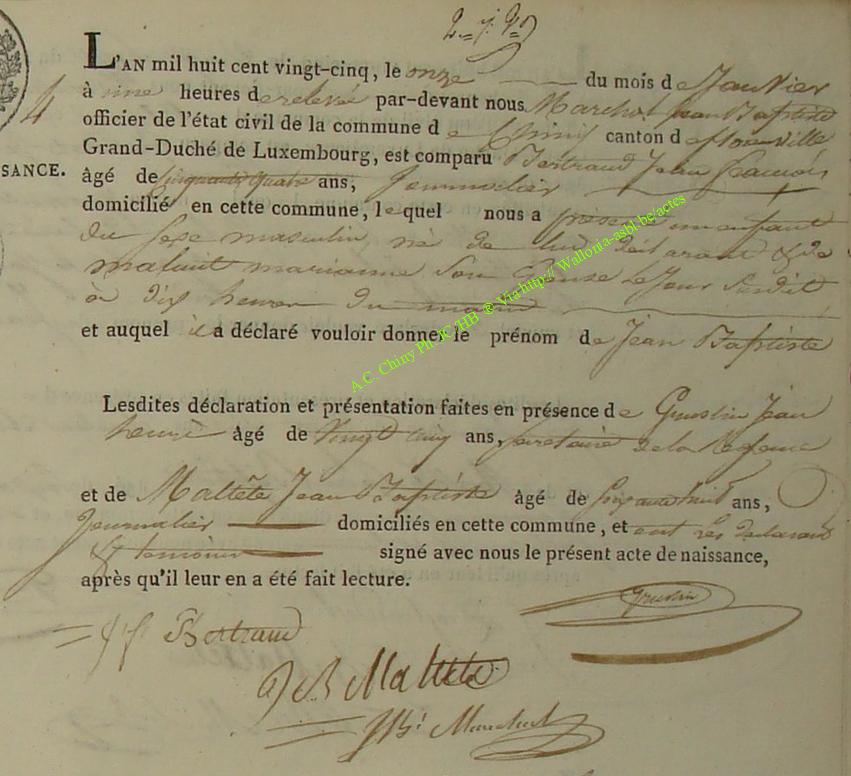 4
L'AN mil huit cent vingt-cinq, le onze du mois de Janvier
à une heures de relevé par-devant nous Marchot Jean Baptiste
officier de l'état civil de la commune de Chiny canton de florenville
SANCE.
Grand-Duché de Luxembourg, est comparu Bertrand Jean francois
âgé de Cinquante Quatre ans, Journalier
domicilié en cette commune, lequel nous a présenté un enfant
du sexe masculin, né de lui déclarant & de
marianne Son Epouse Le Jour Susdit
à Dix heures du matin
et auquel il a déclaré vouloir donner le prénom de Jean Baptiste
A.C. Chiny Ph JC HB @ Via http:// Wallonia-asbl.be/actes
Lesdites déclaration et présentation faites en présence de Jean
henri âgé de Vingt cinq ans, Secretaire de la
et de Maltête Jean Baptiste âgé de Soixante huit ans,
Journalier domiciliés en cette commune, et ont Les declarant
& temoins signé avec nous le présent acte de naissance,
après qu'il leur en a été fait lecture.
Bertrand
J B Maltete
Marchot